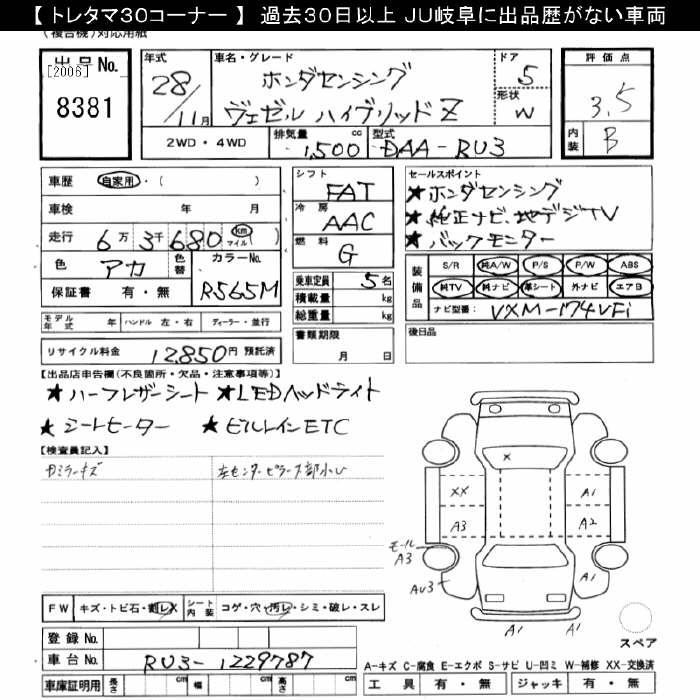 【 トレタマ３０コーナー 】 過去３０日以上 ＪＵ岐阜に出品歴がない車両
(複合機)対応用紙
出品No.
[2006]
8381
年式
28/11月
車名・グレード
ホンダセンシング
ヴェゼル ハイブリッドZ
ドア
5
形状
W
評価点
3.5
内装
B
2WD・4WD
排気量
1,500 cc
型式
DAA-RU3
車歴 自家用・( )
車検 年 月
走行 6万3千680 km マイル
色 アカ
色替
カラーNo.
R565M
保証書 有・無
シフト
FAT
冷房
AAC
燃料
G
乗車定員 5名
積載量 kg
総重量 kg
セールスポイント
★ホンダセンシング
★純正ナビ地デジTV
★バックモニター
装備品
S/R 純A/W P/S P/W ABS
純TV 純ナビ 革シート 外ナビ エアB
ナビ型番: VXM-174VFi
モデル年式 年 ハンドル 左・右 ディーラー・並行
リサイクル料金 12,850円 預託済
書類期限
月 日
後日品
【出品店申告欄(不良箇所・欠品・注意事項等)】
★ハーフレザーシート ★LEDヘッドライト
★シートヒーター ★ビルトインETC
【検査員記入】
ミラーキズ
左センターピラー下部小凹
X
XX
A1
A3
A2
モール
A3
AU3
A1
A1
A1
FW キズ・トビ石・割レX
シート内装 コゲ・穴・汚レ・シミ・破レ・スレ
スペア
登録No.
車台No. RU3-1229787
車庫証明用 長さ cm 幅 cm 高さ cm
A-キズ C-腐食 E-エクボ S-サビ U-凹ミ W-補修 XX-交換済
工具 有・無 ジャッキ 有・無